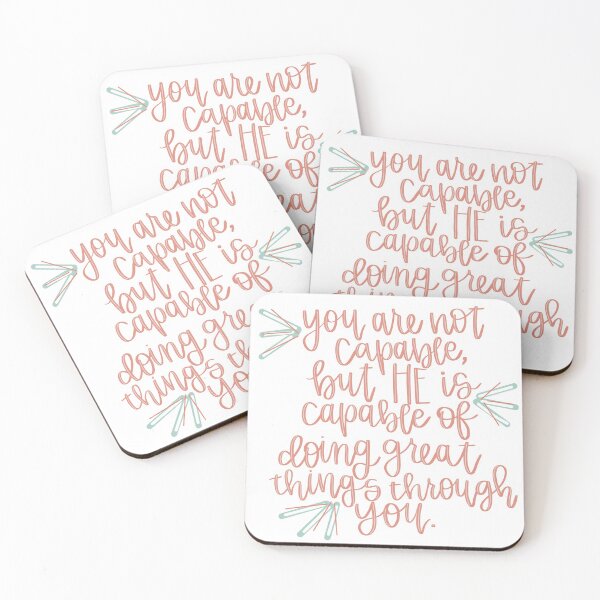 you are not
capable,
but HE is
capable of
you are not
capable,
but HE is
capable of
doing great
you are not
capable,
but HE is
capable of
doing
things
you are not
capable,
but HE is
capable of
doing great
things through
you.